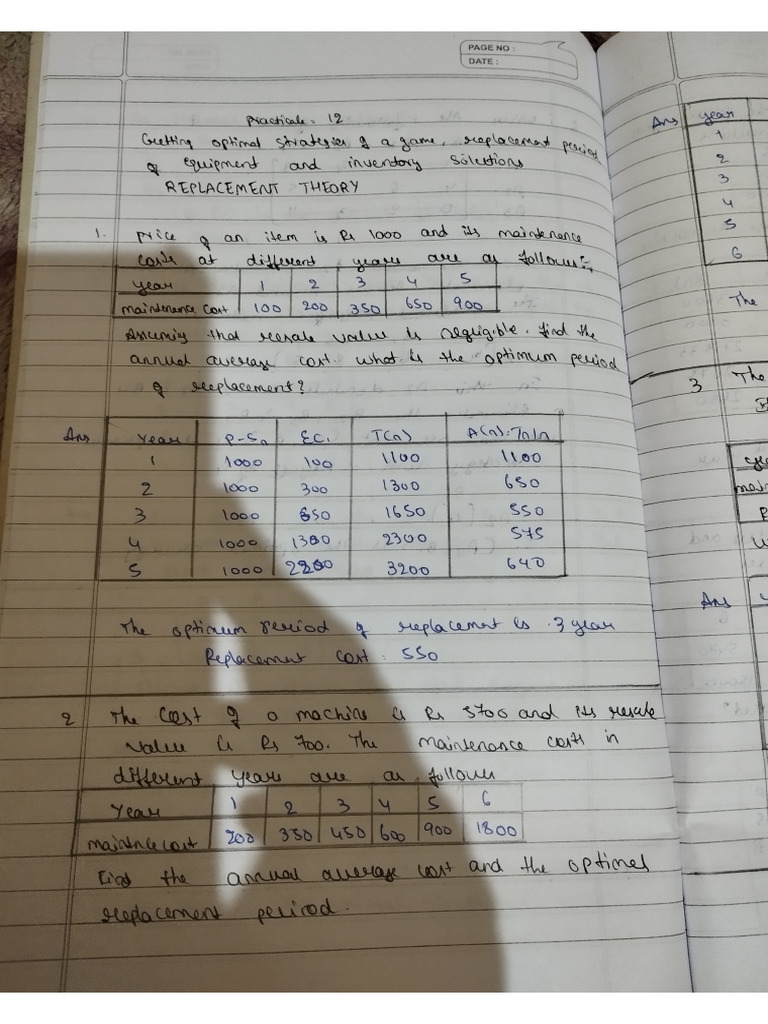 PAGE NO :
DATE :
Practical = 12
Getting optimal strategies of a game, replacement period
of equipment and inventory solutions
REPLACEMENT THEORY
1. Price of an item is Rs 1000 and its maintenance
costs at different years are as follows :-
year 1 2 3 4 5
maintenance cost 100 200 350 650 900
Assuming that resale value is negligible. find the
annual average cost. what is the optimum period
of replacement?
Ans Year P-Sn ΣCi T(n) A(n):Tn/n
1 1000 100 1100 1100
2 1000 300 1300 650
3 1000 650 1650 550
4 1000 1300 2300 575
5 1000 2200 3200 640
The optimum period of replacement is 3 year
Replacement cost : 550
2 The Cost of a machine is Rs 3700 and its resale
value is Rs 700. The maintenance costs in
different years are as follows
Year 1 2 3 4 5 6
maintnce cost 200 350 450 600 900 1800
Find the annual average cost and the optimal
replacement period.
Ans year
1
2
3
4
5
6
The
3 The
Ans